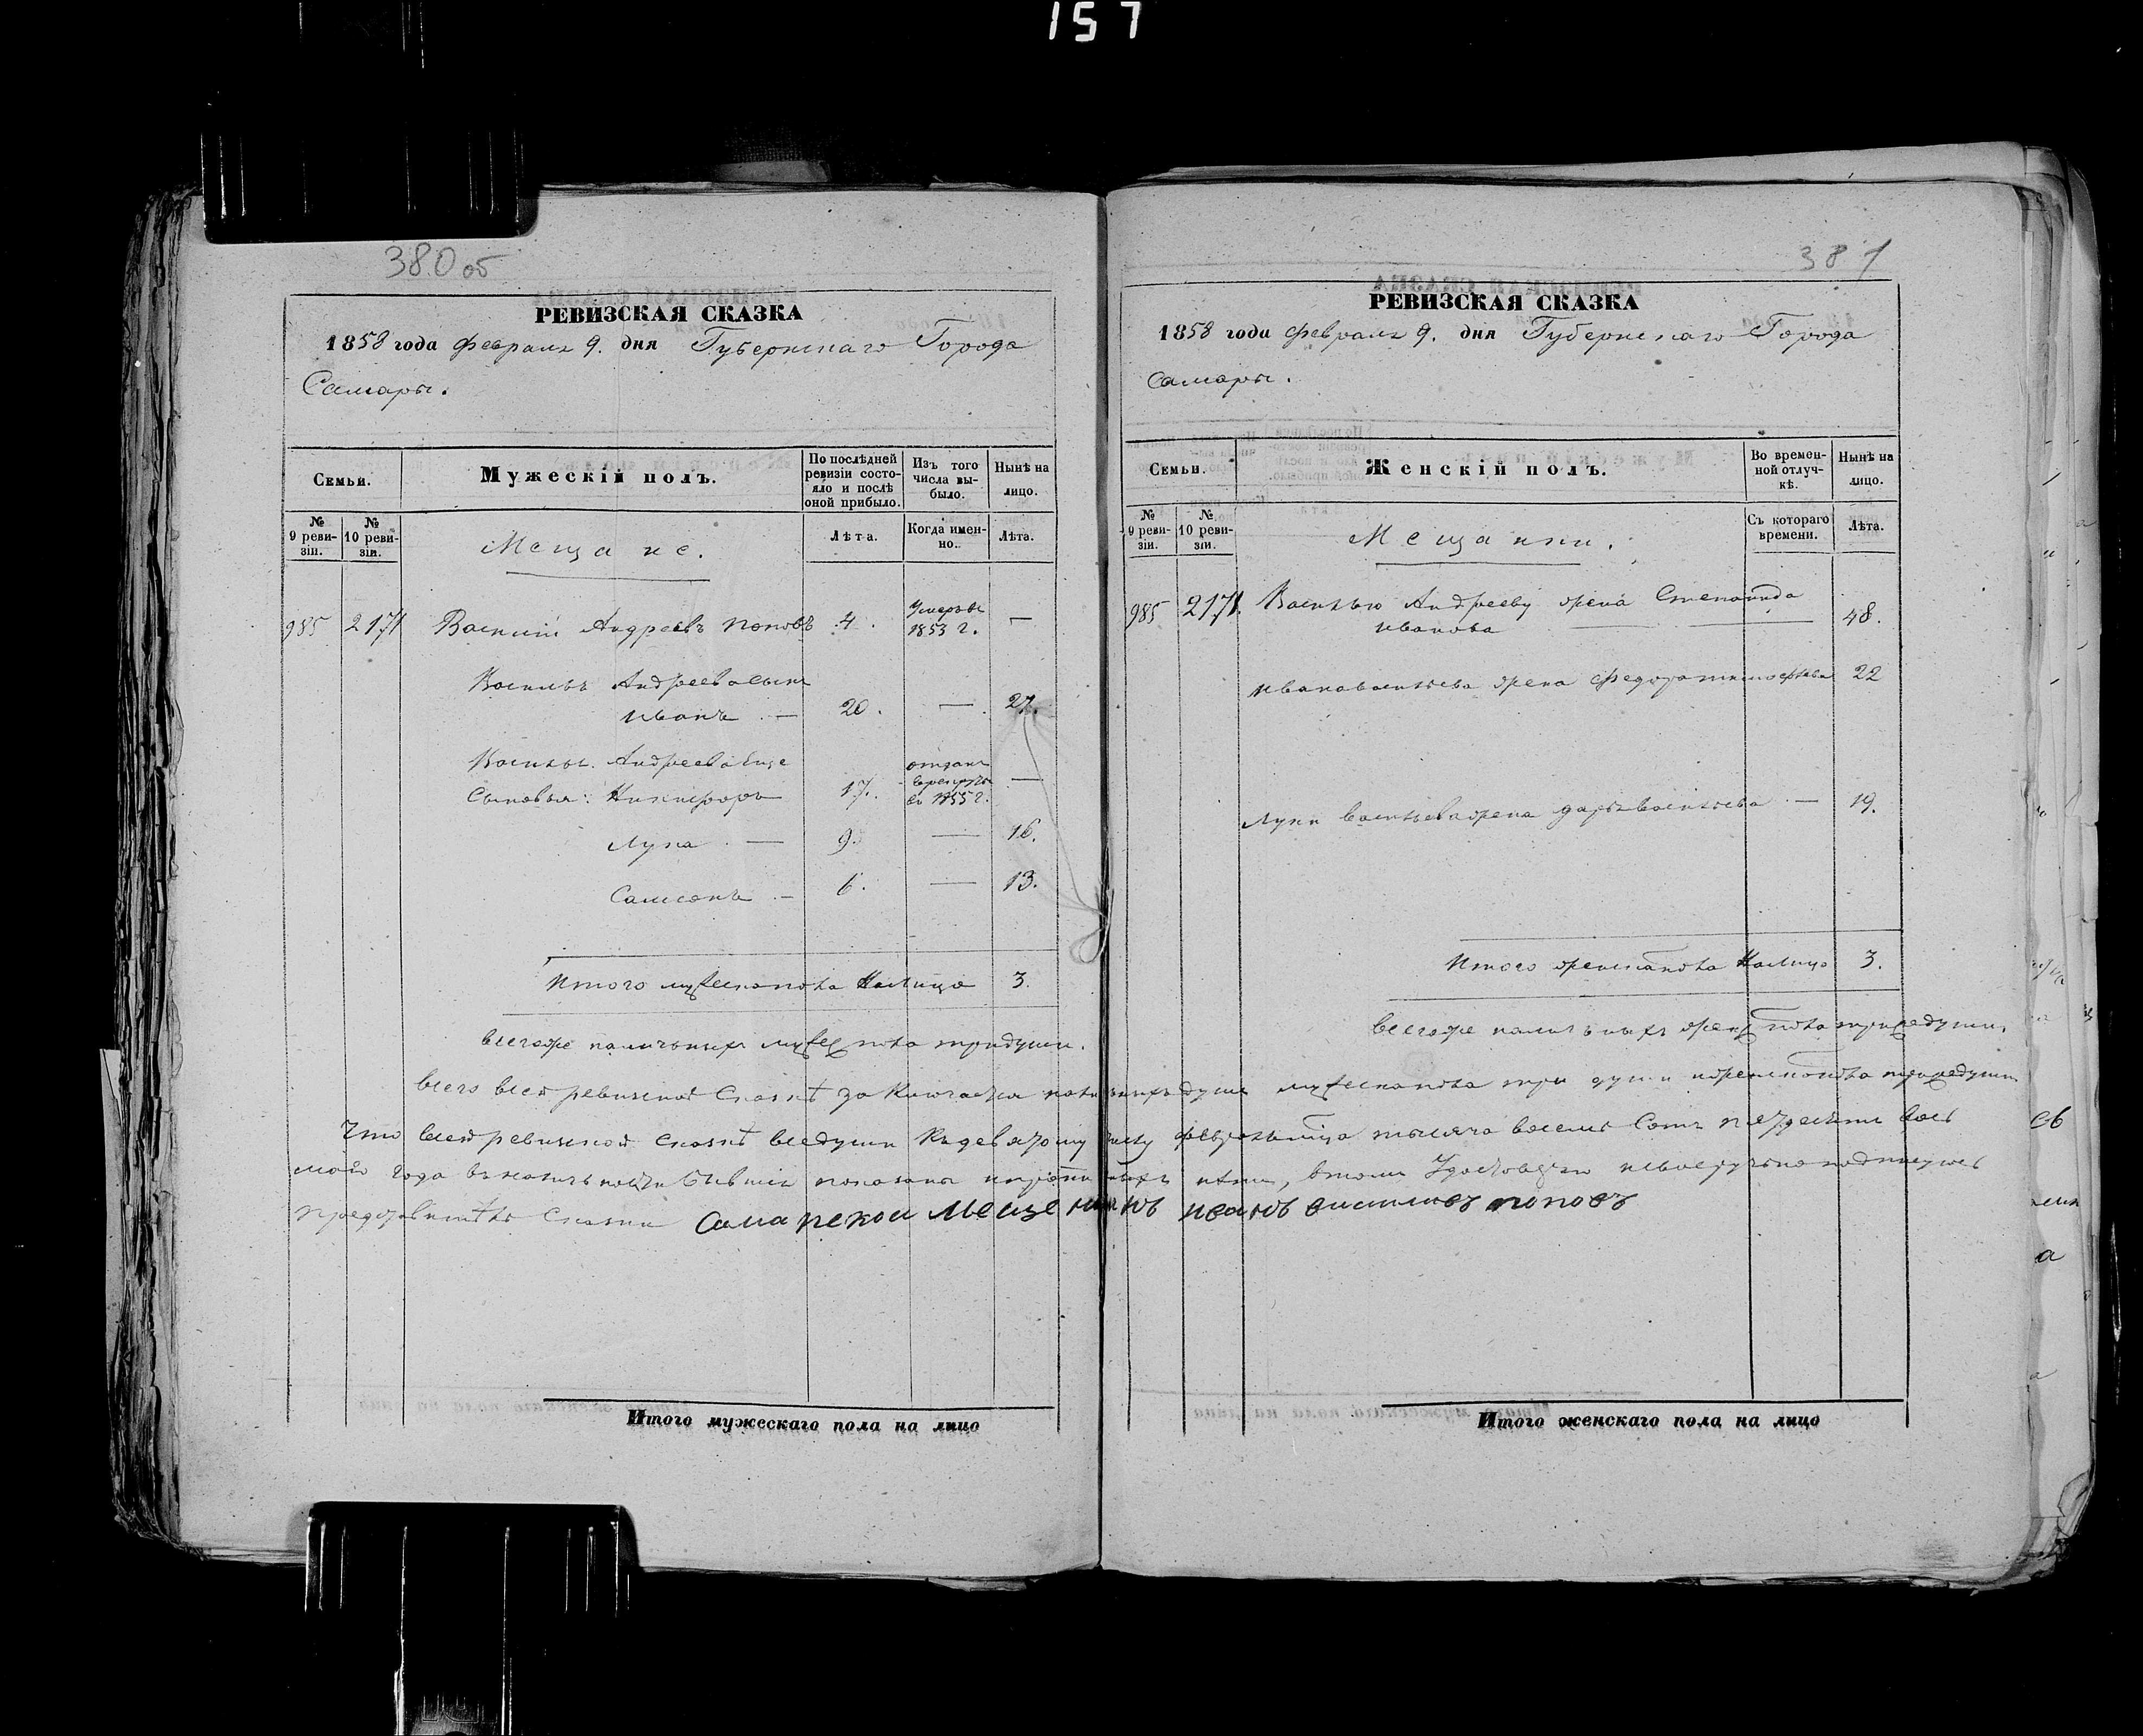 157
380 об
РЕВИЗСКАЯ СКАЗКА
1858 года февраля 9. дня Губернскаго Города
Самары.
Семьи.
Мужескій полъ.
По послѣдней ревизіи состояло и послѣ оной прибыло.
Изъ того числа выбыло.
Нынѣ на лицо.
№ 9 ревизіи.
№ 10 ревизіи.
Мещане.
Лѣта.
Когда именно.
Лѣта.
985 2171 Василій Андреевъ Поповъ 4. Умеръ въ 1853 г. —
Василья Андреева сынъ
Иванъ — 20. — 27.
Василья Андреева еще
сыновья: Никифоръ 17. отданъ в рекруты въ 1855 г. —
Лука — 9. — 16.
Самсонъ — 6. — 13.
Итого мужескаго пола на лицо 3.
всего же наличныхъ муж. пола три души.
Итого мужескаго пола на лицо
387
РЕВИЗСКАЯ СКАЗКА
1858 года февраля 9. дня Губернскаго Города
Самары.
Семьи.
Женскій полъ.
Во временной отлучкѣ.
Нынѣ на лицо.
№ 9 ревизіи.
№ 10 ревизіи.
Мещанки.
Съ котораго времени.
Лѣта.
985 2171. Василью Андрееву жена Степанида
Иванова — 48.
Ивана Васильева жена Федора Тимофѣева 22
Луки Васильева жена Дарья Васильева — 19.
Итого женскаго пола на лицо 3.
всего же наличныхъ женс. пола три души.
всего в сей ревизской сказкѣ заключается наличныхъ душъ мужескаго пола три души и женскаго пола три души
Что в сей ревизской сказкѣ все души къ девятому числу февраля тысяча восемь сотъ пятьдесятъ вось
мого года в наличности бывшіе показаны и пропи нѣтъ, в томъ удостовѣряю и своеручно подписуюсь
предъявитель сказки Самарской мещенинъ Иванъ Василиевъ Поповъ
Итого женскаго пола на лицо